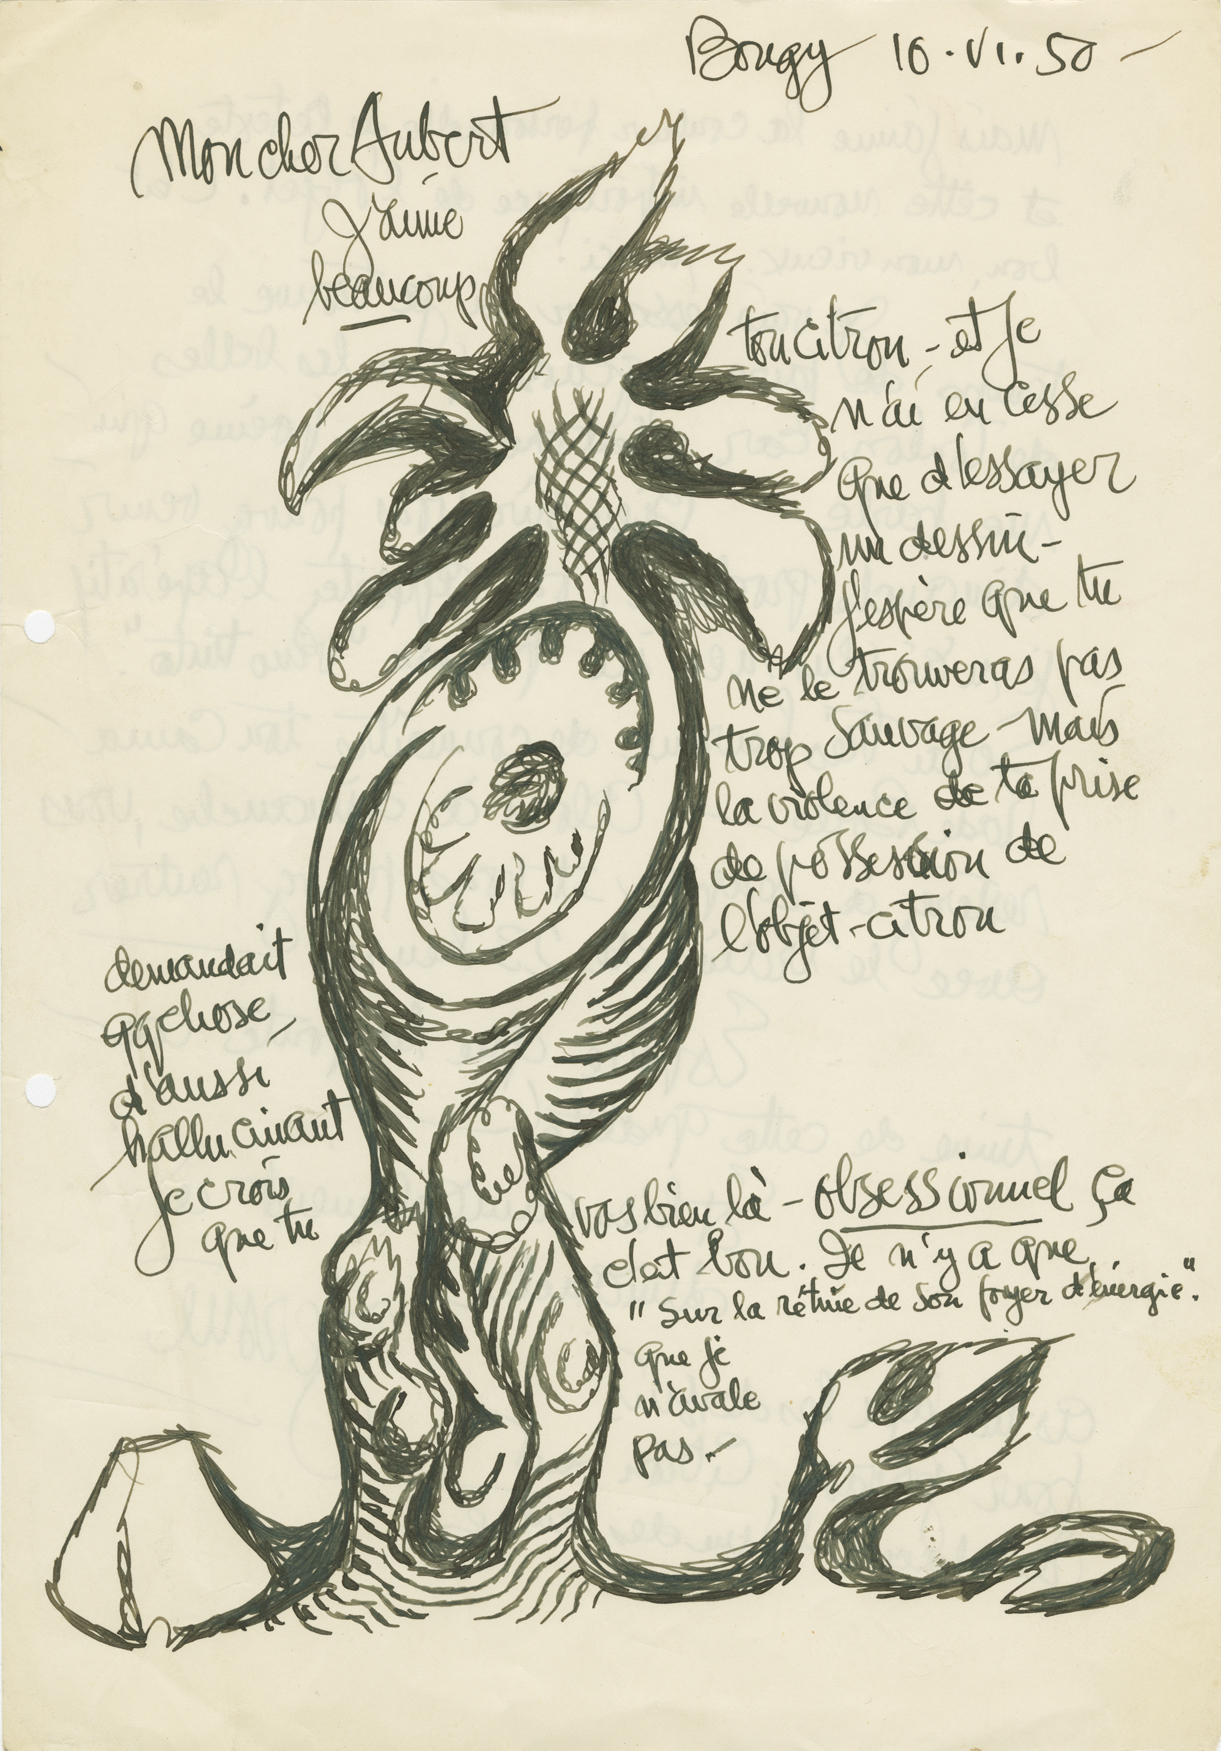 Bougy 10.VI.50 -
Mon cher Aubert
J'aime
beaucoup
ton citron - et je
n'ai eu cesse
que d'essayer
un dessin -
J'espère que tu
ne le trouveras pas
trop sauvage - Mais
la violence de ta prise
de possession de
l'objet-citron
demandait
qqchose
d'aussi
hallucinant
Je crois
que tu
vas bien là - obsessionnel ça
c'est bon. Je n'y a que
"sur la rétine de son foyer d'énergie."
que je
n'avale
pas -